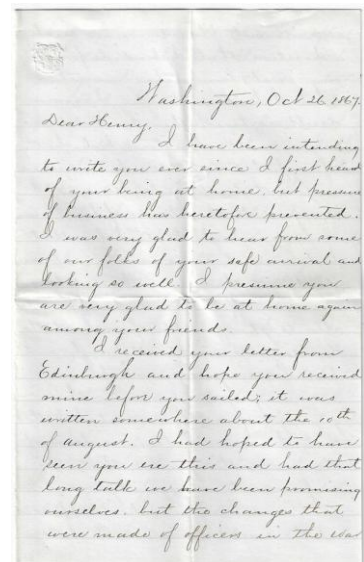 Washington, Oct 26 1867
Dear Henry,
I have been intending
to write you ever since I first head
of your being at home, but pressure
of business has heretofore prevented.
I was very glad to hear from some
of our folks of your safe arrival and
looking so well. I presume you
are very glad to be at home again
among your friends.
I received your letter from
Edinburgh and hope you received
mine before you sailed; it was
written somewhere about the 10th
of August. I had hoped to have
seen you ere this and had that
long talk we have been promising
ourselves, but the changes that
were made of officers in the War